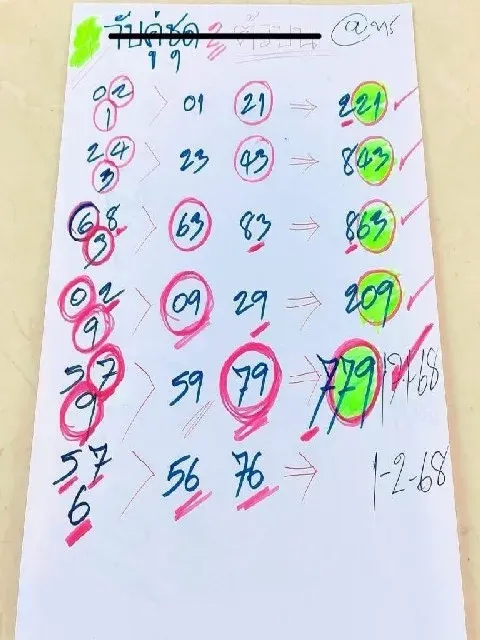 จับคู่ชุด 2 ตัวบน
02 01 21 ⇒ 221 ✓
1
24 23 43 ⇒ 843 ✓
3
68 63 83 ⇒ 863 ✓
3
02 09 29 ⇒ 209 ✓
9
57 59 79 ⇒ 779 ✓
9
57 56 76 ⇒ 1-2-68
6